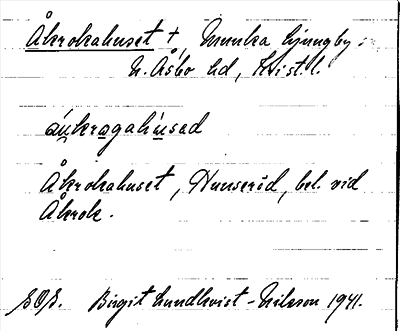 Åkrokahuset †, Munka Ljungby
N. Åsbo hd, Krist. l.
áu̯krogahu̇sad
Åkrokahuset, Hunseröd, bel. vid
Åkrok.
SOS. Birgit Lundkvist-Nilsson 1941.